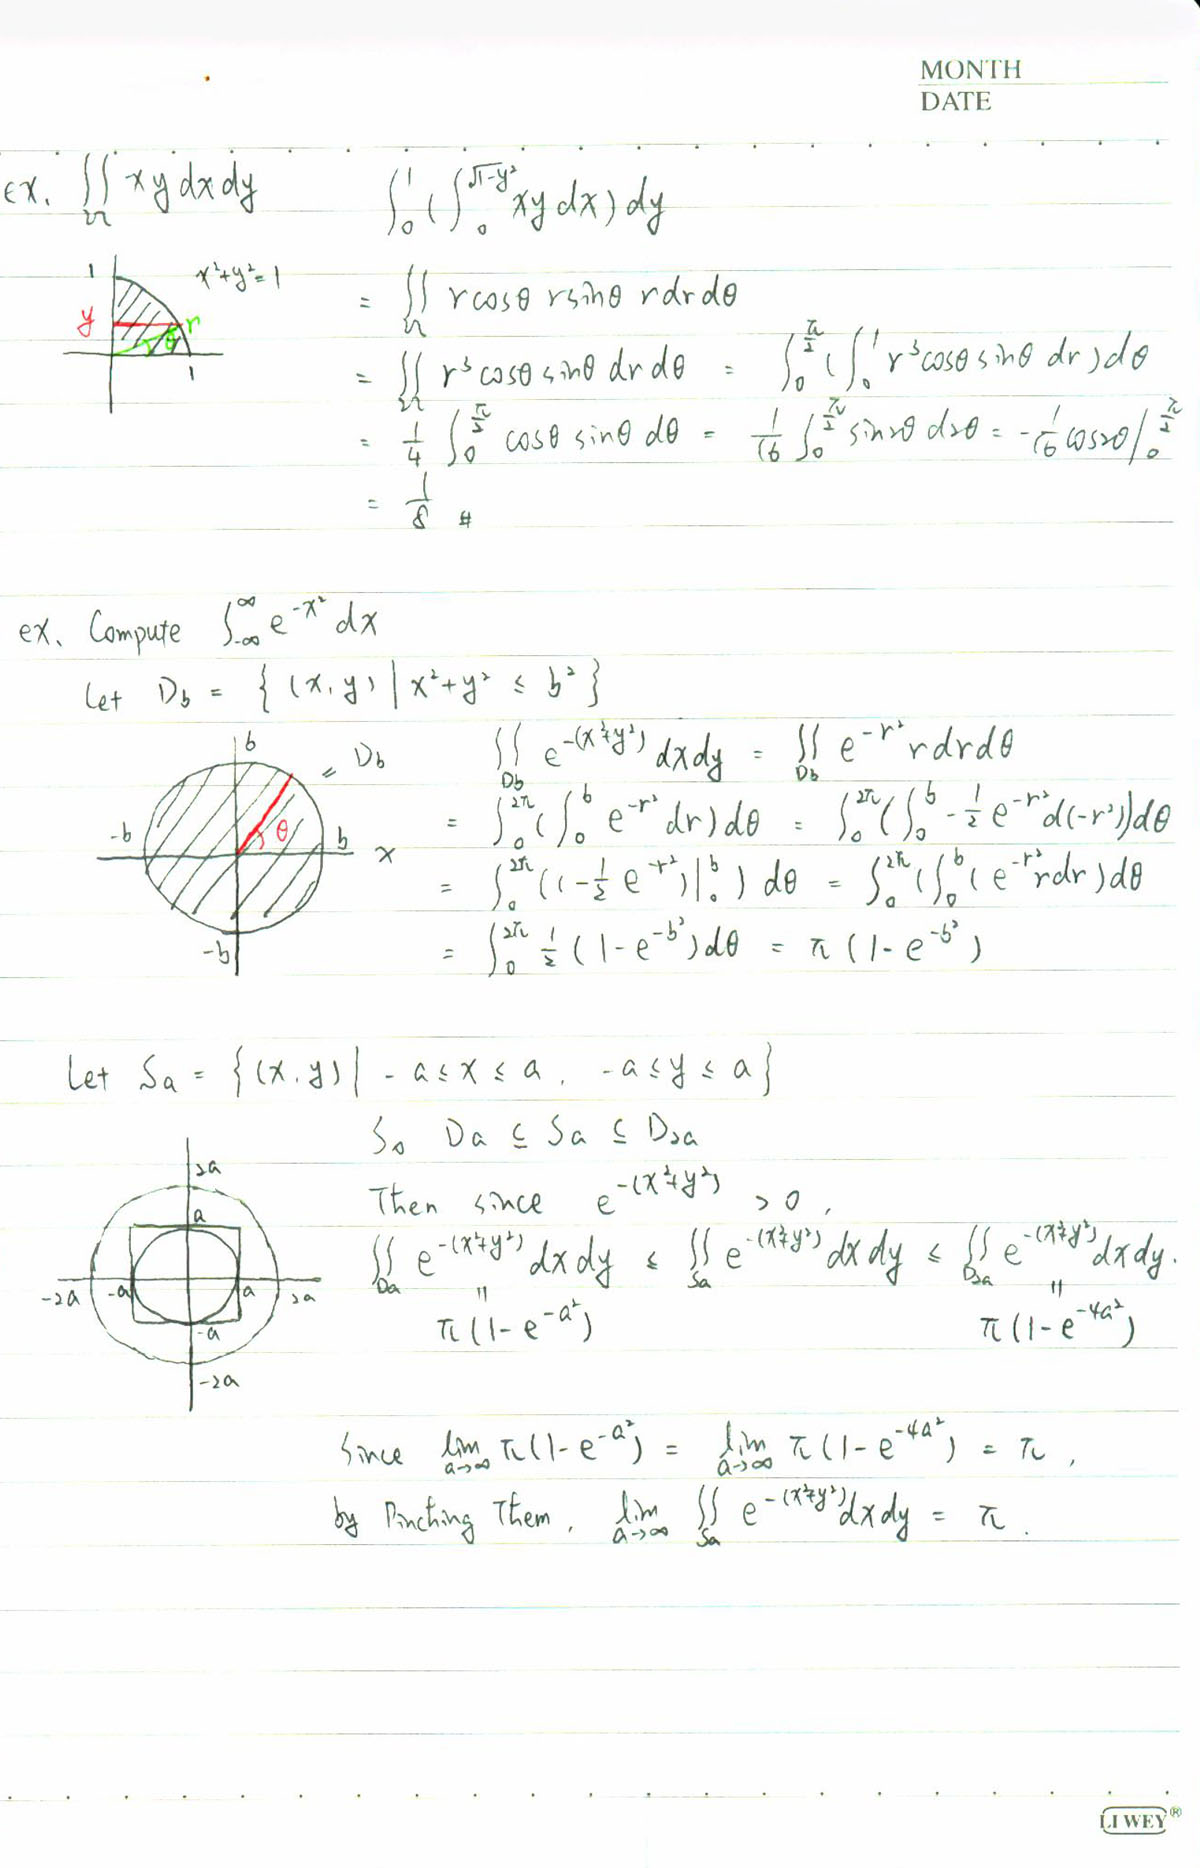 MONTH
DATE
ex. ∬_Ω xy dx dy    ∫_0^1 (∫_0^{√1-y²} xy dx) dy
1    x²+y²=1    = ∬_Ω r cosθ r sinθ r dr dθ
y    r    θ    1
= ∬_Ω r³ cosθ sinθ dr dθ = ∫_0^{π/2} (∫_0^1 r³ cosθ sinθ dr) dθ
= 1/4 ∫_0^{π/2} cosθ sinθ dθ = 1/16 ∫_0^{π/2} sin2θ d2θ = -1/16 cos2θ |_0^{π/2}
= 1/8 #
ex. Compute ∫_{-∞}^{∞} e^{-x²} dx
Let D_b = { (x, y) | x²+y² ≤ b² }
b    = D_b    ∬_{D_b} e^{-(x²+y²)} dx dy = ∬_{D_b} e^{-r²} r dr dθ
-b    θ    b    x    = ∫_0^{2π} (∫_0^b e^{-r²} dr) dθ = ∫_0^{2π} (∫_0^b -1/2 e^{-r²} d(-r²)) dθ
= ∫_0^{2π} ((-1/2 e^{-r²}) |_0^b ) dθ = ∫_0^{2π} (∫_0^b (e^{-r²} r dr) dθ
-b    = ∫_0^{2π} 1/2 (1-e^{-b²}) dθ = π (1-e^{-b²})
Let S_a = { (x, y) | -a ≤ x ≤ a, -a ≤ y ≤ a }
So D_a ⊆ S_a ⊆ D_{2a}
2a    Then since e^{-(x²+y²)} > 0,
a    ∬_{D_a} e^{-(x²+y²)} dx dy ≤ ∬_{S_a} e^{-(x²+y²)} dx dy ≤ ∬_{D_{2a}} e^{-(x²+y²)} dx dy.
-2a    -a    a    2a    =    =
-a    π(1-e^{-a²})    π(1-e^{-4a²})
-2a
Since lim_{a→∞} π(1-e^{-a²}) = lim_{a→∞} π(1-e^{-4a²}) = π,
by Pinching Them, lim_{a→∞} ∬_{S_a} e^{-(x²+y²)} dx dy = π.
LI WEY®